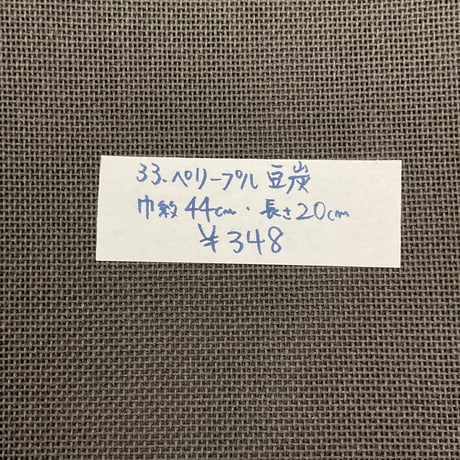 33.ペリープル 豆炭
巾約44cm・長さ20cm
¥348